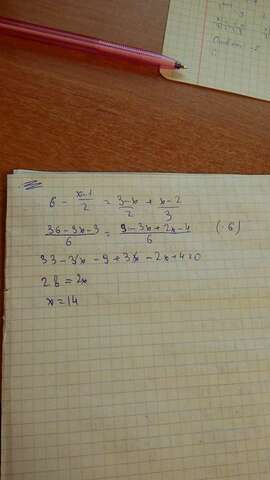 6 - \frac{x-1}{2} = \frac{3-x}{2} + \frac{x-2}{3}
\frac{36-3x-3}{6} = \frac{9-3x+2x-4}{6} (·6)
33-3x-9+3x-2x+4=0
28=2x
x=14